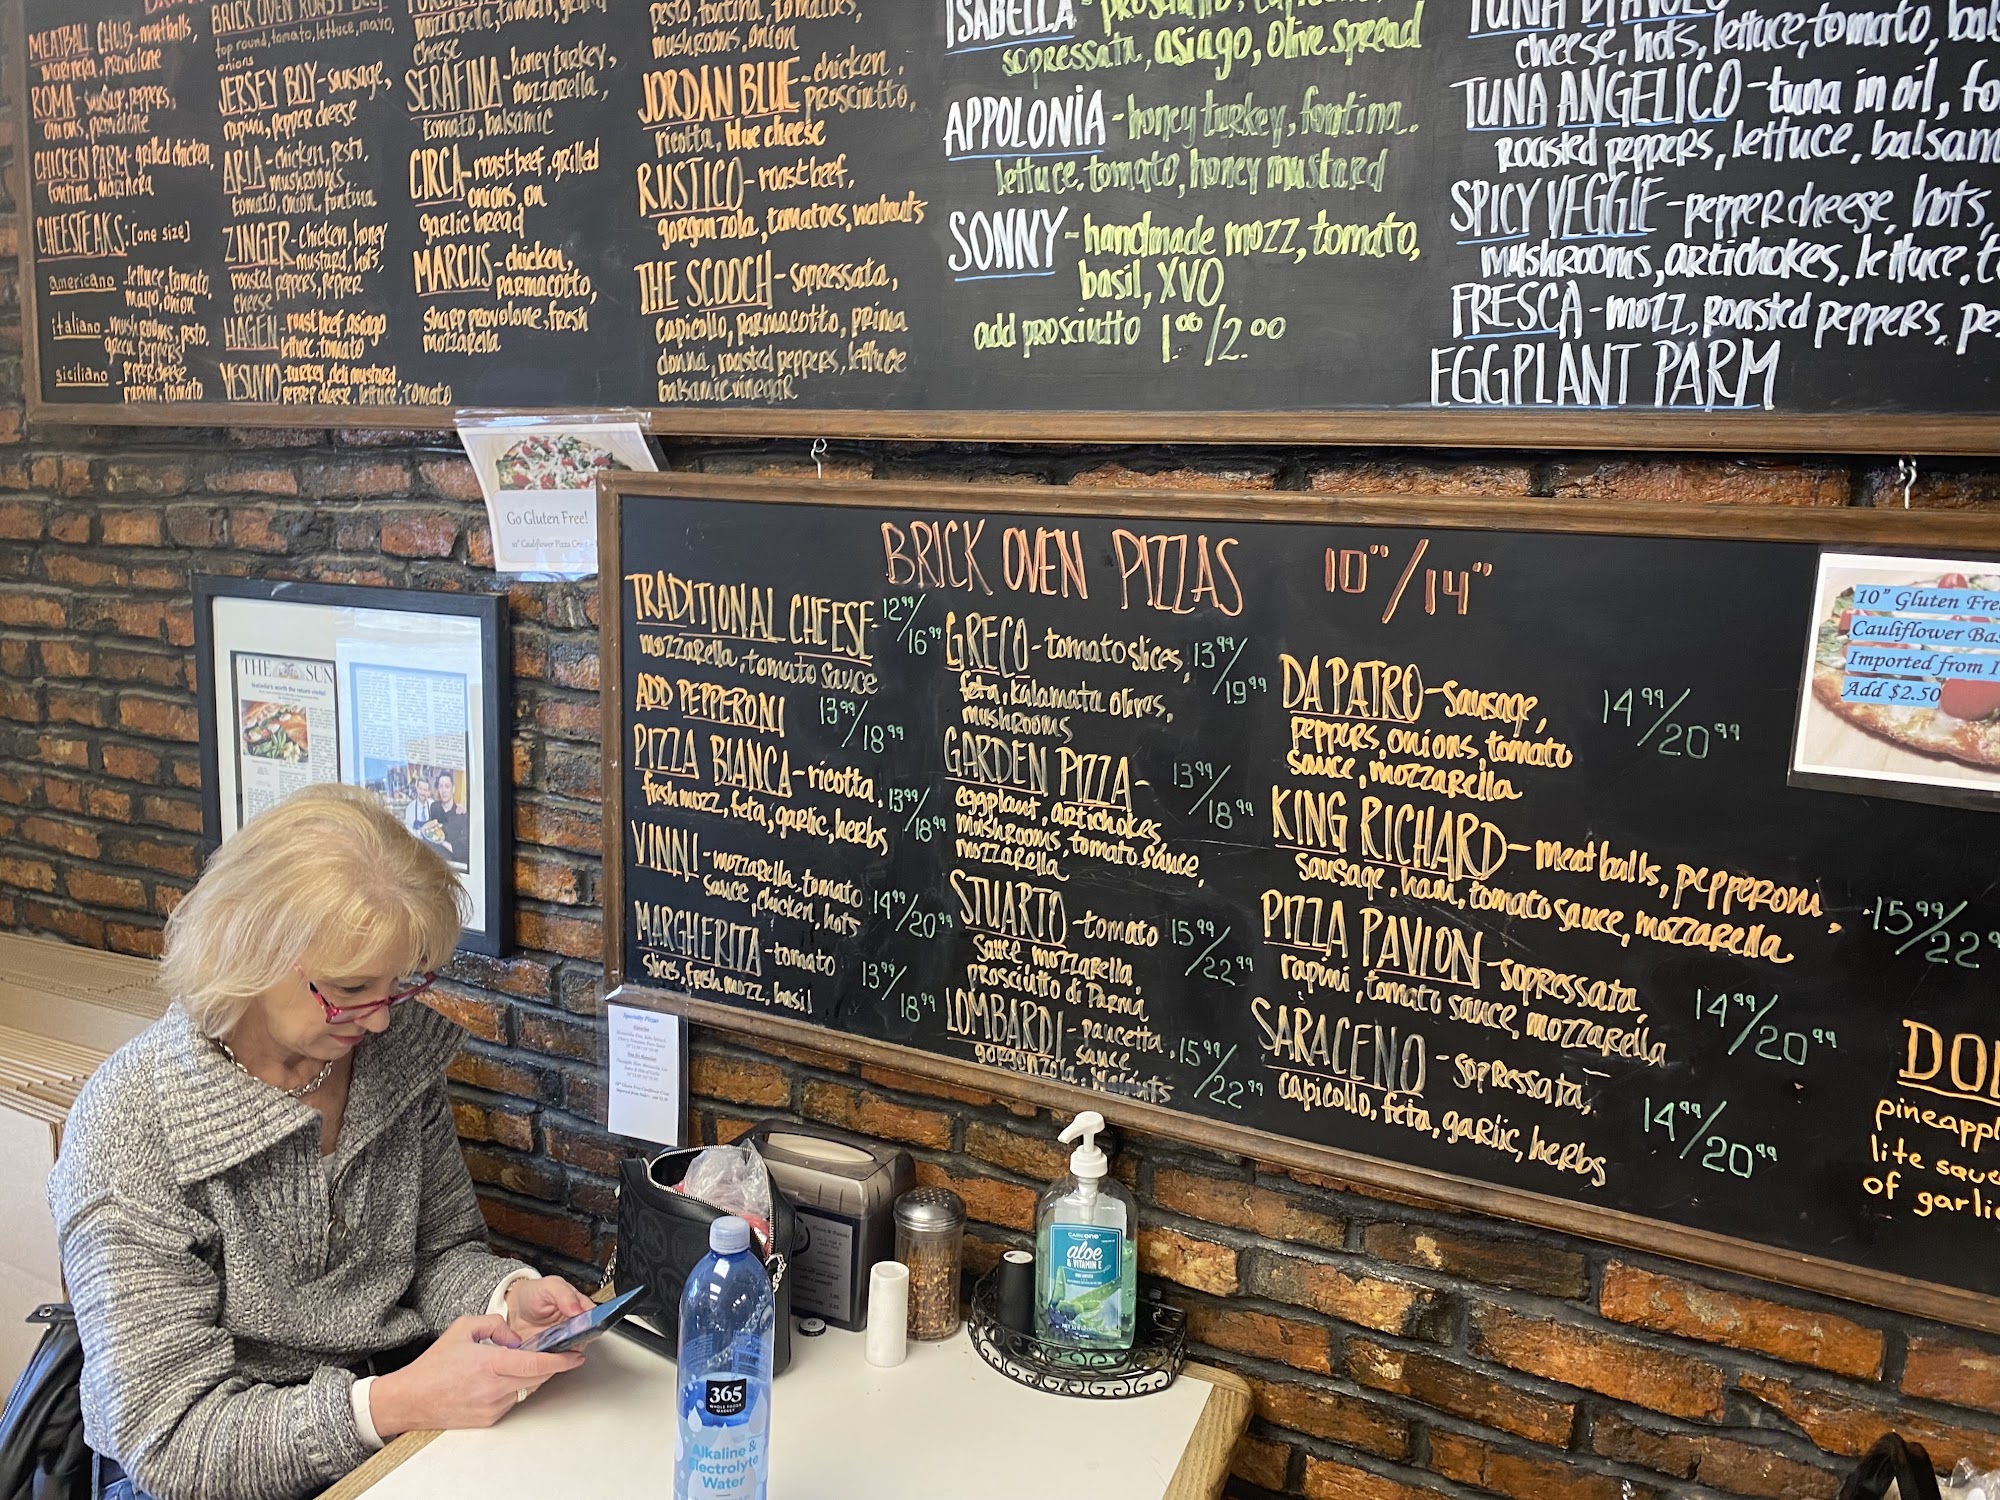 MEATBALL CHUB-meatballs,
marinera, provolone
ROMA-sausage, peppers,
onions, provolone
CHICKEN PARM-grilled chicken,
fontina, marinera
CHEESTEAKS:[one size]
americano-lettuce, tomato,
mayo, onion
italiano-mushrooms, pesto,
green peppers
siciliano-pepper cheese
rapini, tomato
BRICK OVEN ROAST BEEF
top round, tomato, lettuce, mayo,
onions
JERSEY BOY-sausage,
rapini, pepper cheese
ARIA-chicken, pesto,
mushrooms
tomato, onion, fontina
ZINGER-chicken, honey
mustard, hots,
roasted peppers, pepper
cheese
HAGEN-roast beef, asiago
lettuce, tomato
VESUVIO-turkey, deli mustard
pepper cheese, lettuce, tomato
mozzarella, tomato,
cheese
SERAFINA-honey turkey,
mozzarella,
tomato, balsamic
CIRCA-roast beef, grilled
onions, on
garlic bread
MARCUS-chicken,
parmacotto,
sharp provolone, fresh
mozzarella
pesto, fontina, tomatoes,
mushrooms, onion
JORDAN BLUE-chicken,
prosciutto,
ricotta, blue cheese
RUSTICO-roast beef,
gorgonzola, tomatoes, walnuts
THE SCOOCH-sopressata,
capicollo, parmacotto, prima
donna, roasted peppers, lettuce
balsamic vinegar
ISABELLA-prosciutto,
sopressata, asiago, olive spread
APPOLONIA-honey turkey, fontina.
lettuce, tomato, honey mustard
SONNY-handmade mozz, tomato,
basil, XVO
add prosciutto 1.00/2.00
TUNA DIAVOLO
cheese, hots, lettuce, tomato, bals
TUNA ANGELICO-tuna in oil, fo
roasted peppers, lettuce, balsam
SPICY VEGGIE-pepper cheese, hots,
mushrooms, artichokes, lettuce, t
FRESCA-mozz, roasted peppers, pe
EGGPLANT PARM
Go Gluten Free!
10" Cauliflower Pizza Crust
THE SUN
Natalia's worth the return visit!
BRICK OVEN PIZZAS 10"/14"
TRADITIONAL CHEESE- 12.99/16.99
mozzarella, tomato sauce
ADD PEPPERONI 13.99/18.99
PIZZA BIANCA-ricotta, 13.99/18.99
fresh mozz, feta, garlic, herbs
VINNI-mozzarella, tomato 14.99/20.99
sauce, chicken, hots
MARGHERITA-tomato 13.99/18.99
slices, fresh mozz, basil
GRECO-tomato slices, 13.99/19.99
feta, kalamata olives,
mushrooms
GARDEN PIZZA- 13.99/18.99
eggplant, artichokes
mushrooms, tomato sauce,
mozzarella
STUARTO-tomato 15.99/22.99
sauce mozzarella,
prosciutto di Parma
LOMBARDI-pancetta, 15.99/22.99
sauce
gorgonzola, walnuts
DA PATRO-sausage, 14.99/20.99
peppers, onions, tomato
sauce, mozzarella
KING RICHARD-meatballs, pepperoni, 15.99/22.9
sausage, ham, tomato sauce, mozzarella
PIZZA PAVION-sopressata, 14.99/20.99
rapini, tomato sauce, mozzarella
SARACENO-sopressata, 14.99/20.99
capicollo, feta, garlic, herbs
10" Gluten Fre
Cauliflower Bas
Imported from I
Add $2.50
DOL
pineappl
lite sauc
of garlic
Specialty Pizzas
CAREONE
aloe
& VITAMIN E
365
WHOLE FOODS
MARKET
Alkaline &
Electrolyte
Water